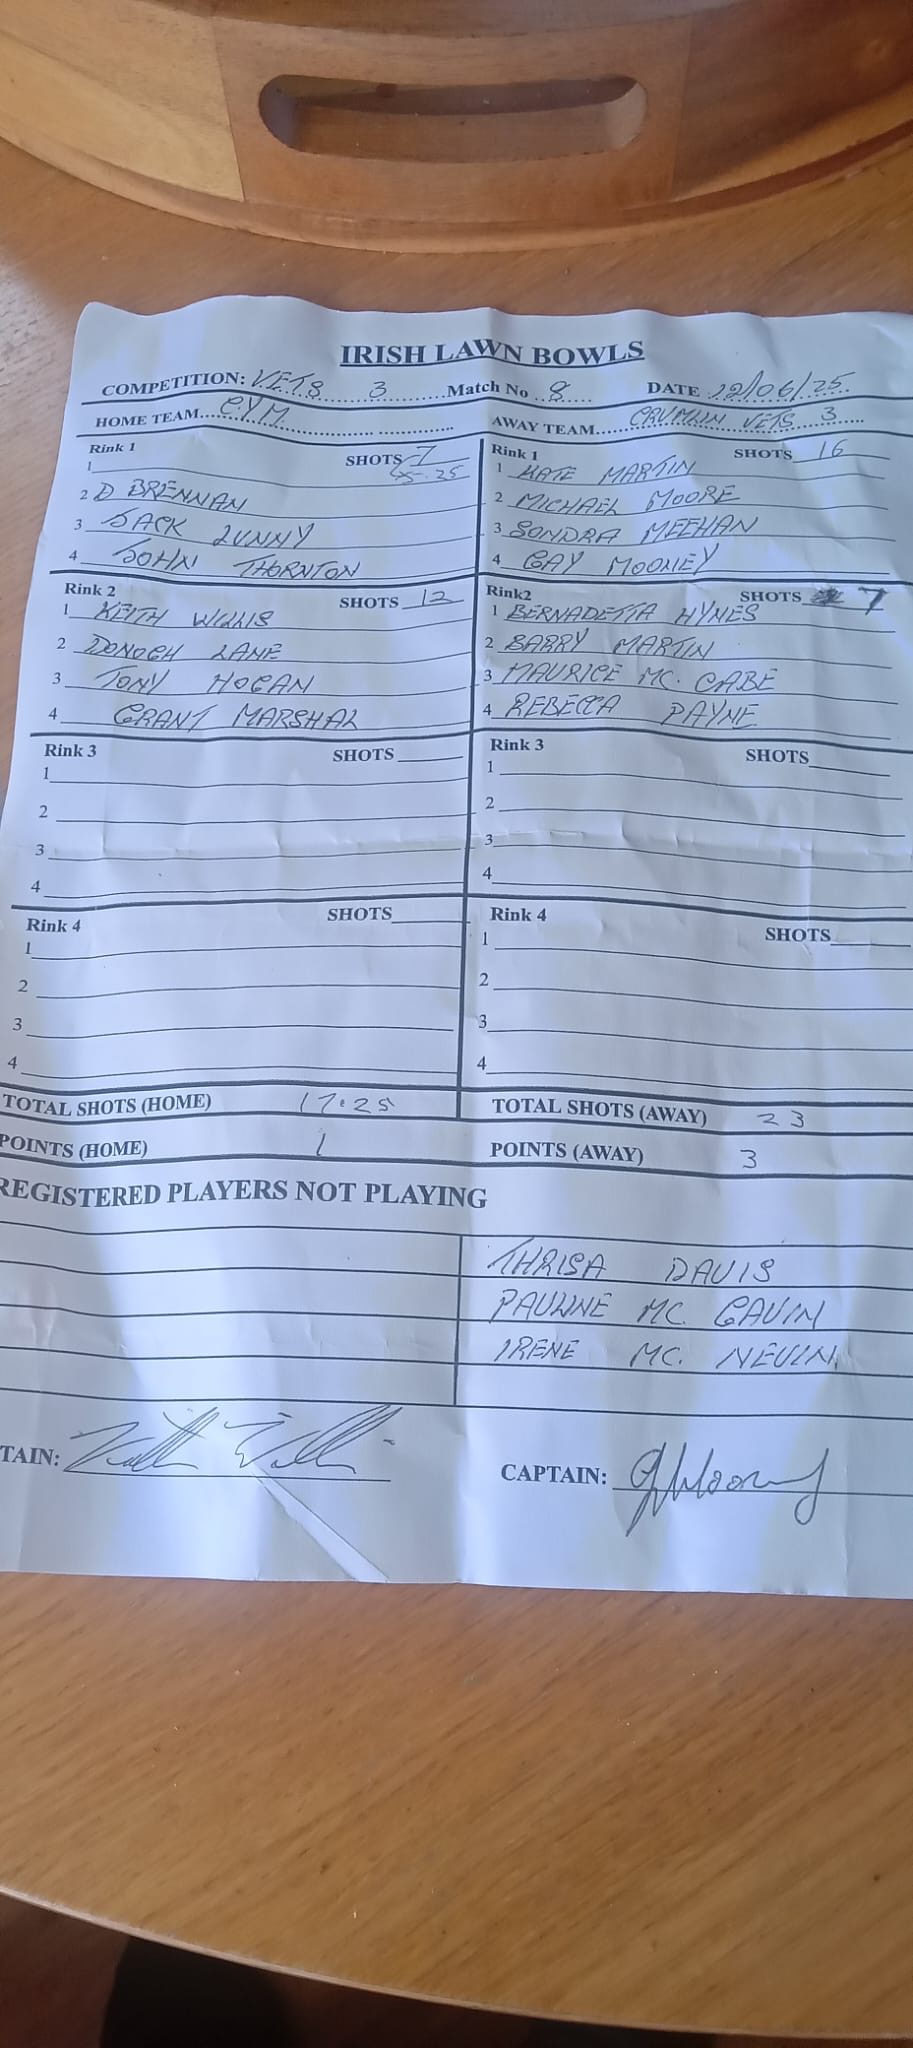 IRISH LAWN BOWLS
COMPETITION: VETS 3 Match No 8 DATE 12/06/25
HOME TEAM C.Y.M. AWAY TEAM CRUMLIN VETS 3
Rink 1 SHOTS 7 Rink 1 SHOTS 16
5.25
1 1 KATE MARTIN
2 D BRENNAN 2 MICHAEL MOORE
3 JACK LUNNY 3 SONDRA MEEHAN
4 JOHN THORNTON 4 GAY MOONEY
Rink 2 SHOTS 12 Rink2 SHOTS 7
1 KEITH WILLIS 1 BERNADETTA HYNES
2 DONOGH LANE 2 BARRY MARTIN
3 TONY HOGAN 3 MAURICE MC. CABE
4 GRANT MARSHAL 4 REBECCA PAYNE
Rink 3 SHOTS Rink 3 SHOTS
1 1
2 2
3 3
4 4
Rink 4 SHOTS Rink 4 SHOTS
1 1
2 2
3 3
4 4
TOTAL SHOTS (HOME) 17.25 TOTAL SHOTS (AWAY) 23
POINTS (HOME) 1 POINTS (AWAY) 3
REGISTERED PLAYERS NOT PLAYING
THRISA DAVIS
PAULINE MC. GAVIN
IRENE MC. NEVIN.
TAIN: CAPTAIN: